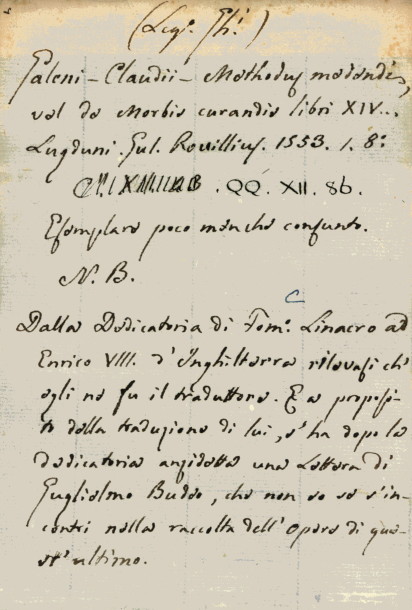 (Leg. Fh.)
Galeni – Claudii – Methodus medendi,
vel de Morbis curandis libri XIV...
Lugduni. Gul. Rovillius. 1553. 1. 8:
QQ. XII. 86.
Esemplare poco menche consunto.
N. B.
Dalla Dedicatoria di Tom. Linacro ad
Enrico VIII. d'Inghilterra rilevasi ch'
egli ne fu il traduttore. E a proposi-
to della traduzione di lui, s'ha dopo la
dedicatoria anzidetta una Lettera di
Guglielmo Budeo, che non so se s'in-
contri nella raccolta dell'Opere di que-
st'ultimo.